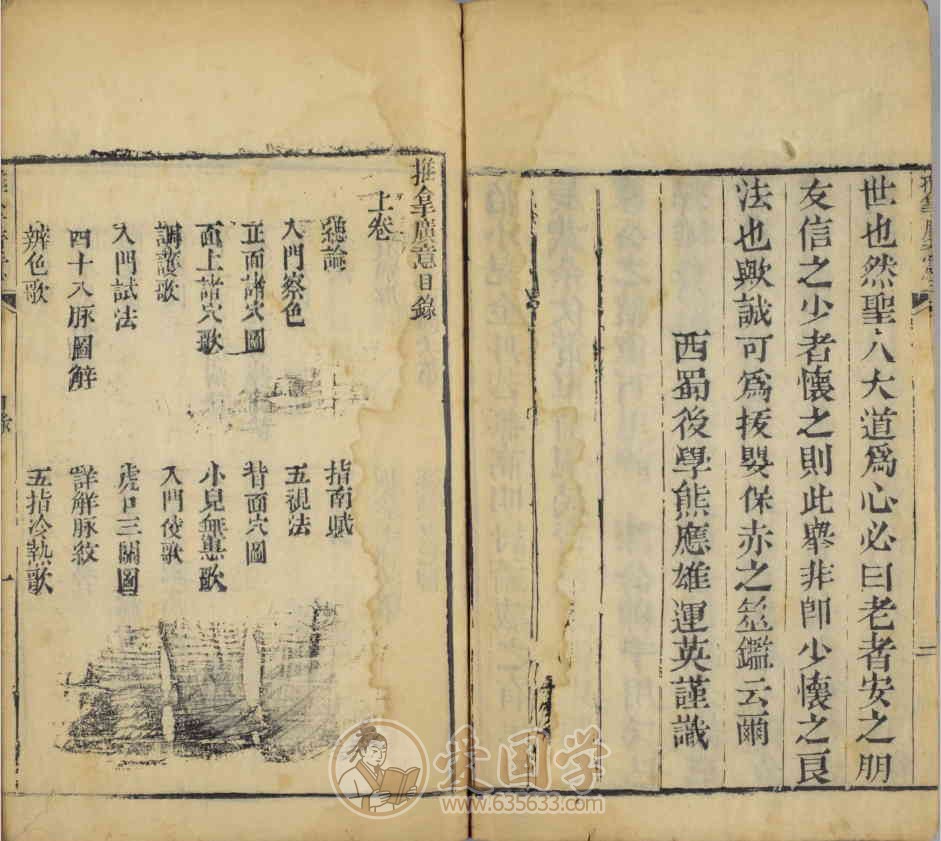 世也然聖人大道爲心必曰老者安之朋
友信之少者懷之則此舉非即少懷之良
法也歟誠可爲拔嬰保赤之筮鑑云爾
西蜀後學熊應雄運英謹識
推拿廣意目錄
上卷
總論
指南賦
入門察色
五視法
正面諸穴圖
背面穴圖
面上諸穴歌
小兒無患歌
調護歌
入門使歌
入門試法
虎口三關圖
四十八脉圖解
詳解脉紋
辨色歌
五指冷熱歌
一
爱国学
www.635633.com